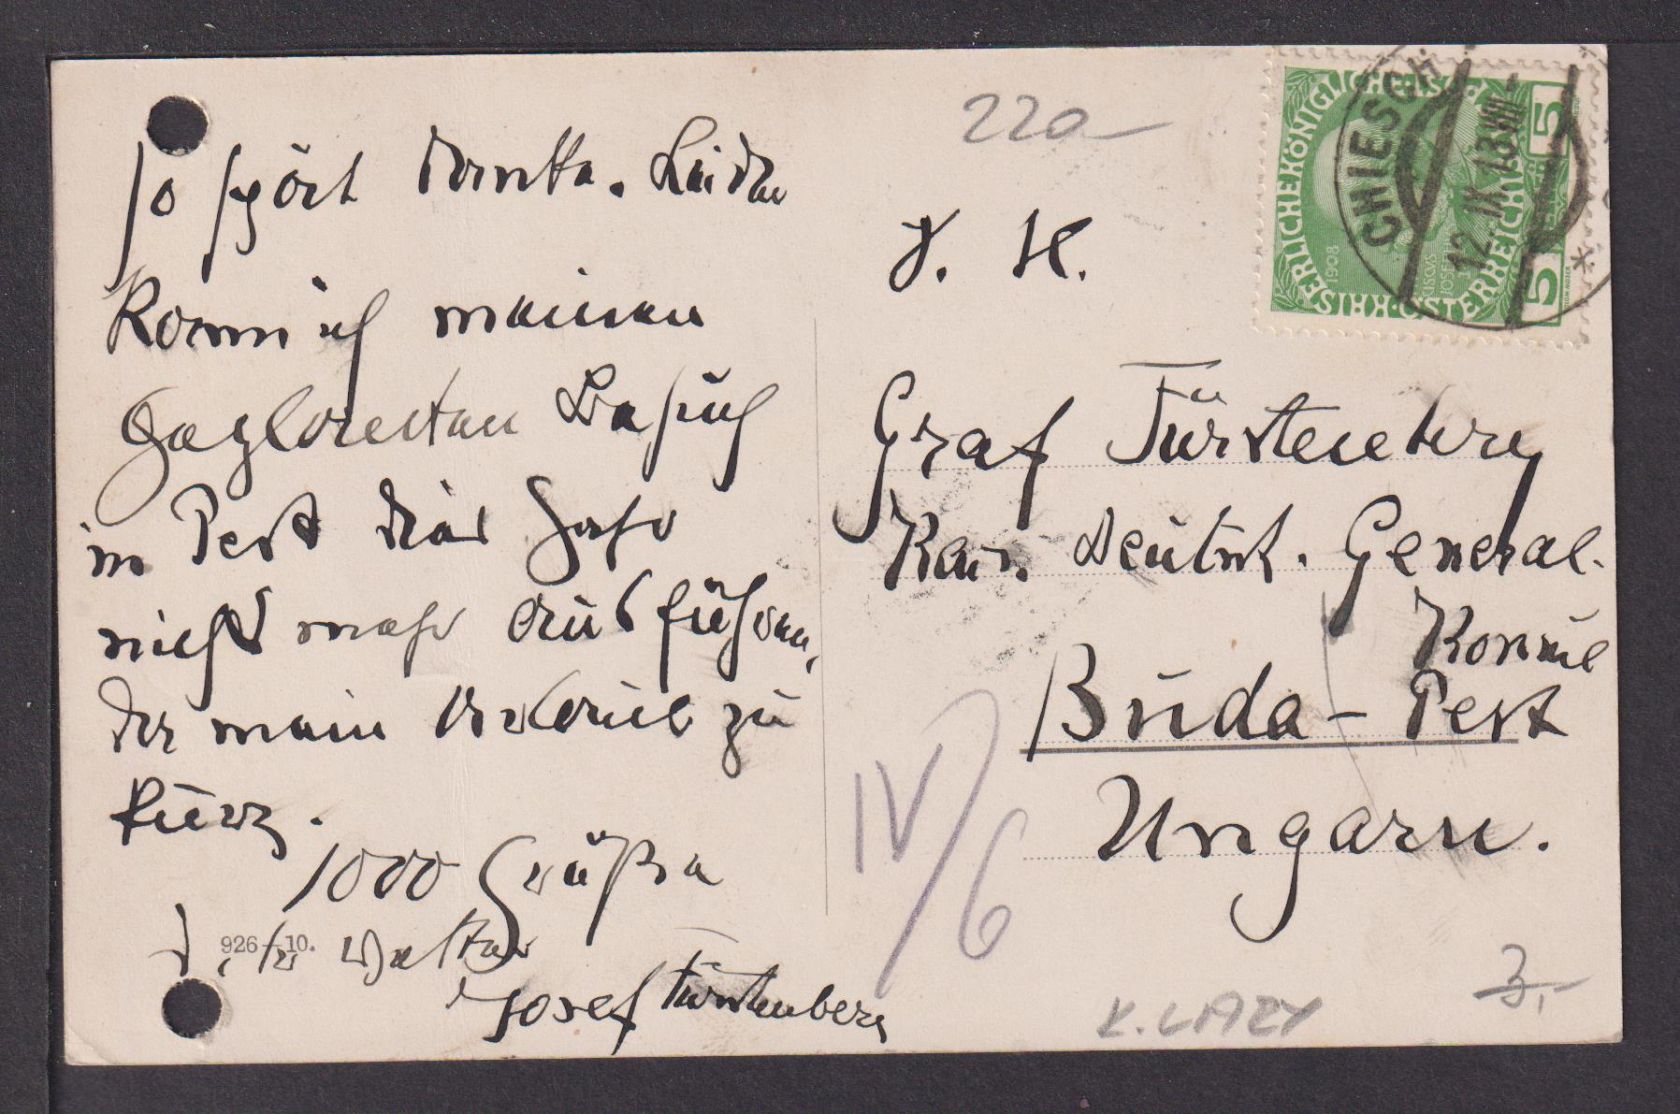 so schört dankte. Leider
kann ich meinen
geplanten Besuch
in Pest dies Jahr
nicht mehr ausführen,
da mein Urlaub zu
kurz.
1000 Grüße
Vetter
Josef Fürstenberg
926-10.
220
S. H.
Graf Fürstenberg
Kais. Deutsch. General-
Konsul
Buda-Pest
Ungarn.
IV/6
K. LAZY
3,-
KAISERLICHE KÖNIGLICHE ÖSTERREICHISCHE POST
5 5
1908
CHIESCH
12.IX.13
*